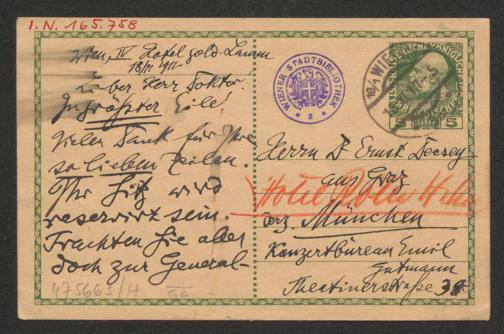 I. N. 165.758
Wien, IV Hotel gold. Lamm
18/11 911
Lieber Herr Doktor.
In größter Eile!
Vielen Dank für Ihre
so lieben Zeilen.
Ihr Sitz wird
reserviert sein.
Trachten Sie aber
doch zur General-
475665/H
WIENER STADTBIBLIOTHEK
WIEN
5 5
Herrn Dr Ernst Decsey
aus Graz
Hotel
derz. München
Konzertbureau Emil
Gutmann
Theatinerstraße 38